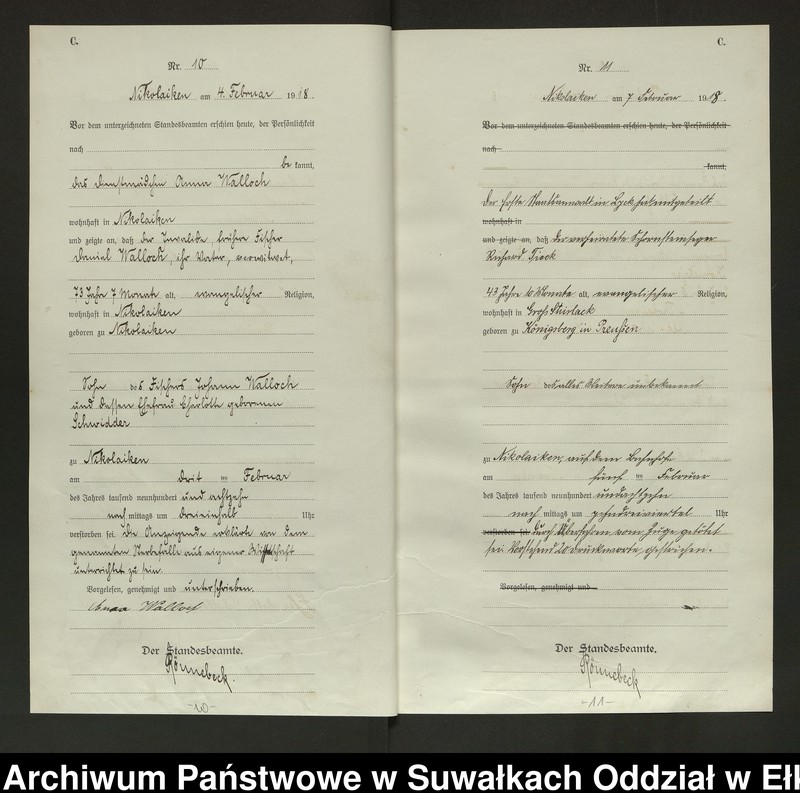 C.
Nr. 10
Nikolaiken am 4. Februar 1918.
Vor dem unterzeichneten Standesbeamten erschien heute, der Persönlichkeit
nach
be kannt,
das Dienstmädchen Anna Walloch
wohnhaft in Nikolaiken
und zeigte an, daß der Invalide, frühere Fischer
Daniel Walloch, ihr Vater, verwitwet,
73 Jahre 7 Monate alt, evangelischer Religion,
wohnhaft in Nikolaiken
geboren zu Nikolaiken
Sohn des Fischers Johann Walloch
und dessen Ehefrau Charlotte geborenen
Schwidder
zu Nikolaiken
am drit ten Februar
des Jahres tausend neunhundert und achtzehn
nach mittags um dreieinhalb Uhr
verstorben sei. Die Anzeigende erklärte von dem
genannten Sterbefalle aus eigener Wissenschaft
unterrichtet zu sein.
Vorgelesen, genehmigt und unterschrieben.
Anna Walloch
Der Standesbeamte.
Rönnebeck.
-10-
C.
Nr. 11
Nikolaiken am 7 Februar 1918.
Vor dem unterzeichneten Standesbeamten erschien heute, der Persönlichkeit
nach
kannt,
Der Erste Staatsanwalt in Lyck hat mitgeteilt
wohnhaft in
und zeigte an, daß der verheiratete Schornsteinfeger
Richard Tieck
43 Jahre 10 Monate alt, evangelischer Religion,
wohnhaft in Groß Stürlack
geboren zu Königsberg in Preußen
Sohn des alles Weitere unbekannt
zu Nikolaiken, auf dem Bahnhofe
am fünf ten Februar
des Jahres tausend neunhundert undachtzehn
nach mittags um zehndreiviertel Uhr
verstorben sei. durch Überfahren vom Zuge getötet
sei. Vorstehend 20 Druckworte gestrichen.
Vorgelesen, genehmigt und
Der Standesbeamte.
Rönnebeck
-11-
Archiwum Państwowe w Suwałkach Oddział w Ełk